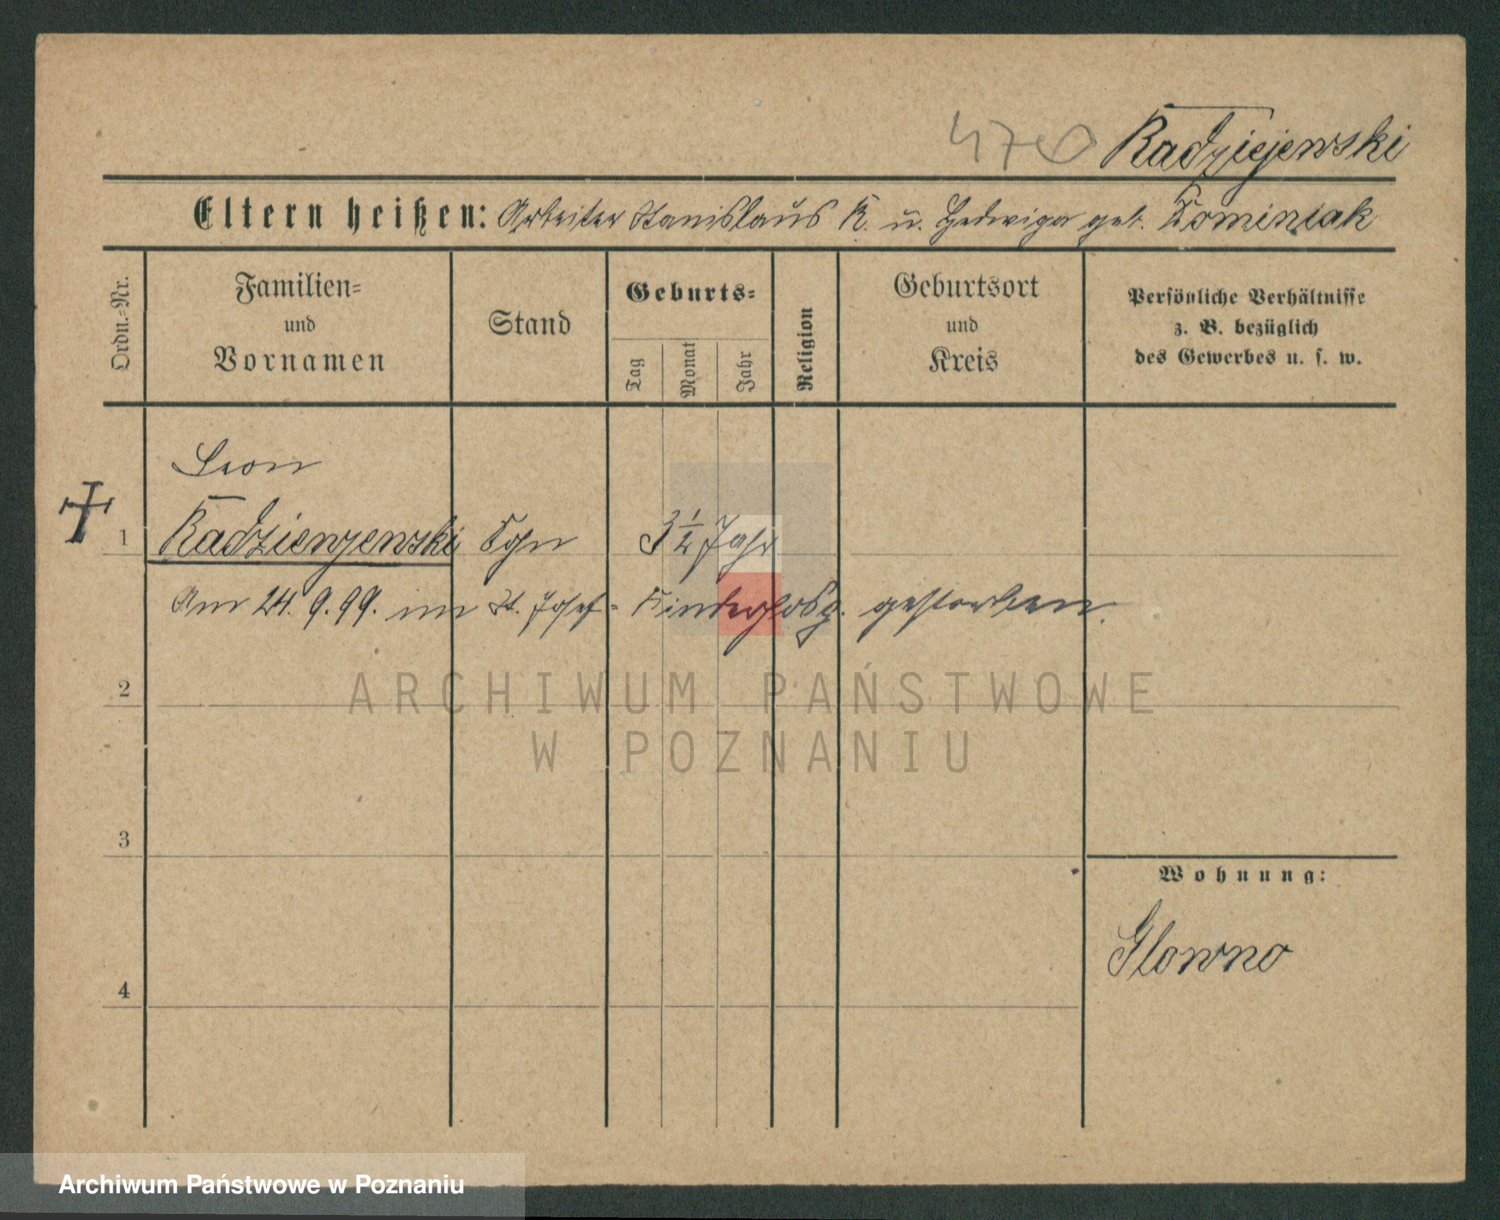 470 Radziejewski
Eltern heißen: Arbeiter Stanislaus R. u. Hedwiga geb. Tominiak
Ordn.=Nr.
Familien=
und
Vornamen
Stand
Geburts=
Tag
Monat
Jahr
Religion
Geburtsort
und
Kreis
Persönliche Verhältnisse
z. B. bezüglich
des Gewerbes u. s. w.
Leon
1 Radzienjewski 3 ½ Jahr
Am 24.9.99. im St. Josef= Kinderhosp. gestorben.
ARCHIWUM PAŃSTWOWE
W POZNANIU
2
3
Wohnung:
Glowno
4
Archiwum Państwowe w Poznaniu